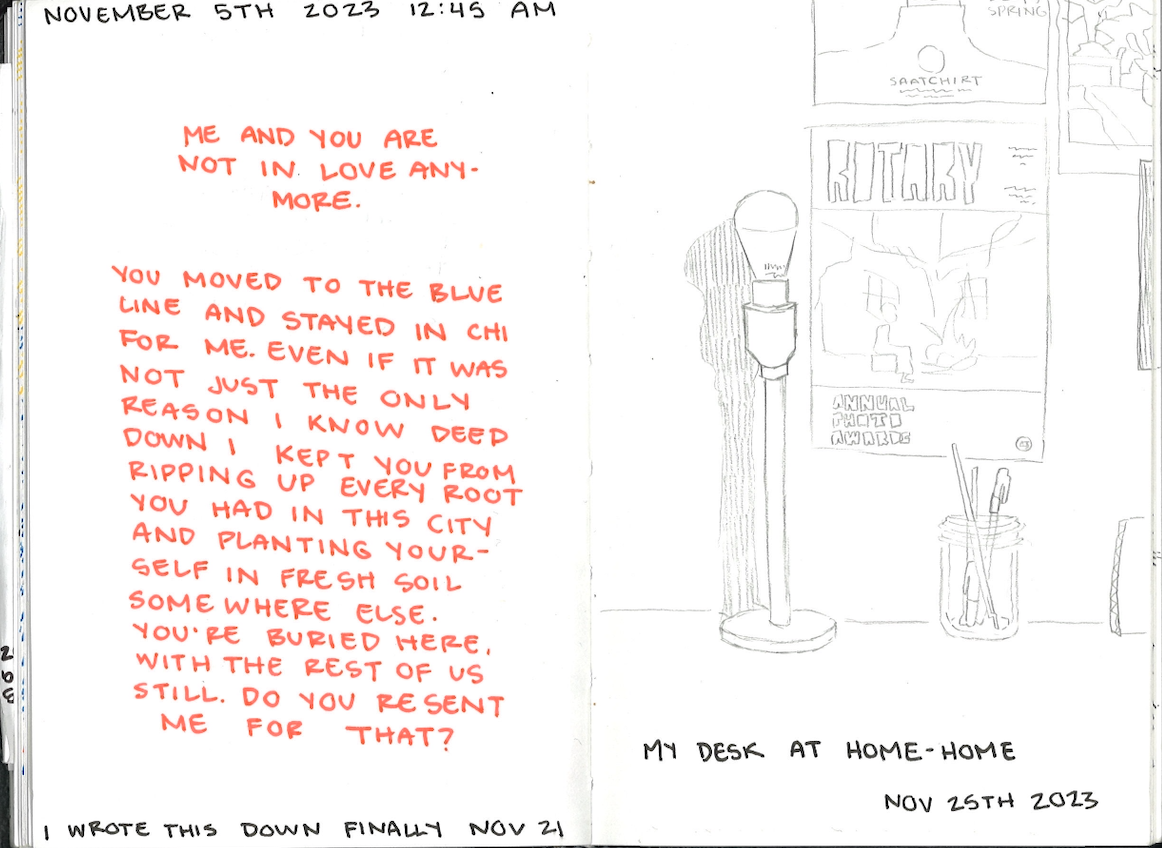 NOVEMBER 5TH 2023 12:45 AM
ME AND YOU ARE
NOT IN LOVE ANY-
MORE.
YOU MOVED TO THE BLUE
LINE AND STAYED IN CHI
FOR ME. EVEN IF IT WAS
NOT JUST THE ONLY
REASON I KNOW DEEP
DOWN I KEPT YOU FROM
RIPPING UP EVERY ROOT
YOU HAD IN THIS CITY
AND PLANTING YOUR-
SELF IN FRESH SOIL
SOMEWHERE ELSE.
YOU'RE BURIED HERE,
WITH THE REST OF US
STILL. DO YOU RESENT
ME FOR THAT?
I WROTE THIS DOWN FINALLY NOV 21
SPRING
SAATCHIRT
ROTARY
ANNUAL
PHOTO
AWARDS
MY DESK AT HOME-HOME
NOV 25TH 2023